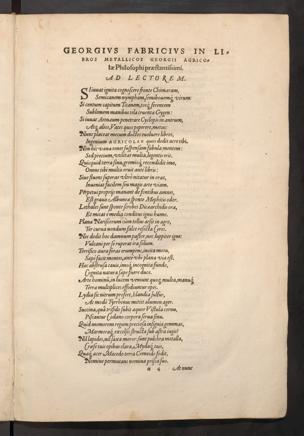 GEORGIVS FABRICIVS IN LI-
BROS METALLICOS GEORGII AGRICO-
læ Philosophi præstantissimi.
AD LECTOREM.
SI iuuat ignita cognoscere fronte Chimæram,
Semicanem nympham, semibouemq; uirum:
Si centum capitum Titanem, totq; ferentem
Sublimem manibus tela cruenta Gygen:
Si iuuat Ætneum penetrare Cyclopis in antrum,
Atque alios, Vates quos peperere, metus:
Nunc placeat mecum doctos euoluere libros,
Ingenium AGRICOLAE quos dedit acre tibi.
Non hic uana tenet suspensam fabula mentem:
Sed precium, utilitas multa, legentis erit.
Quicquid terra sinu, gremioq; recondidit imo,
Omne tibi multis eruit ante libris:
Siue fluens superas ultro nitatur in oras,
Inueniat facilem seu magis arte uiam.
Perpetui proprijs manant de fontibus amnes,
Est grauis Albuneæ sponte Mephitis odor.
Lethales sunt sponte scrobes Dicæarchidis oræ,
Et micat è media conditus ignis humo.
Plana Nariscorum cùm tellus arsit in agro,
Ter curua nondum falce resecta Ceres.
Nec dedit hoc damnum pastor, nec Iuppiter igne:
Vulcani per se ruperat ira solum.
Terrifico aura foras erumpens, incita motu,
Sæpe facit montes, antè ubi plana uia est.
Hæc abstrusa cauis, imoq; incognita fundo,
Cognita natura sæpe fuere duce.
Arte hominum, in lucem ueniunt quoq; multa, manuq;
Terræ multiplices effodiuntur opes.
Lydia sic nitrum profert, Islandia sulfur,
Ac modò Tyrrhenus mittit alumen ager.
Succina, quà trifido subit æquor Vistula cornu,
Piscantur Codano corpora serua sinu.
Quid memorem regum preciosa insignia gemmas,
Marmoraq; excelsis structa sub astra iugis?
Nil lapides, nil saxa moror: sunt pulchra metalla,
Crœse tuis opibus clara, Myda-q; tuis,
Quæq; acer Macedo terra Creneide fodit,
Nomine permutans nomina prisca suo.
At nunc